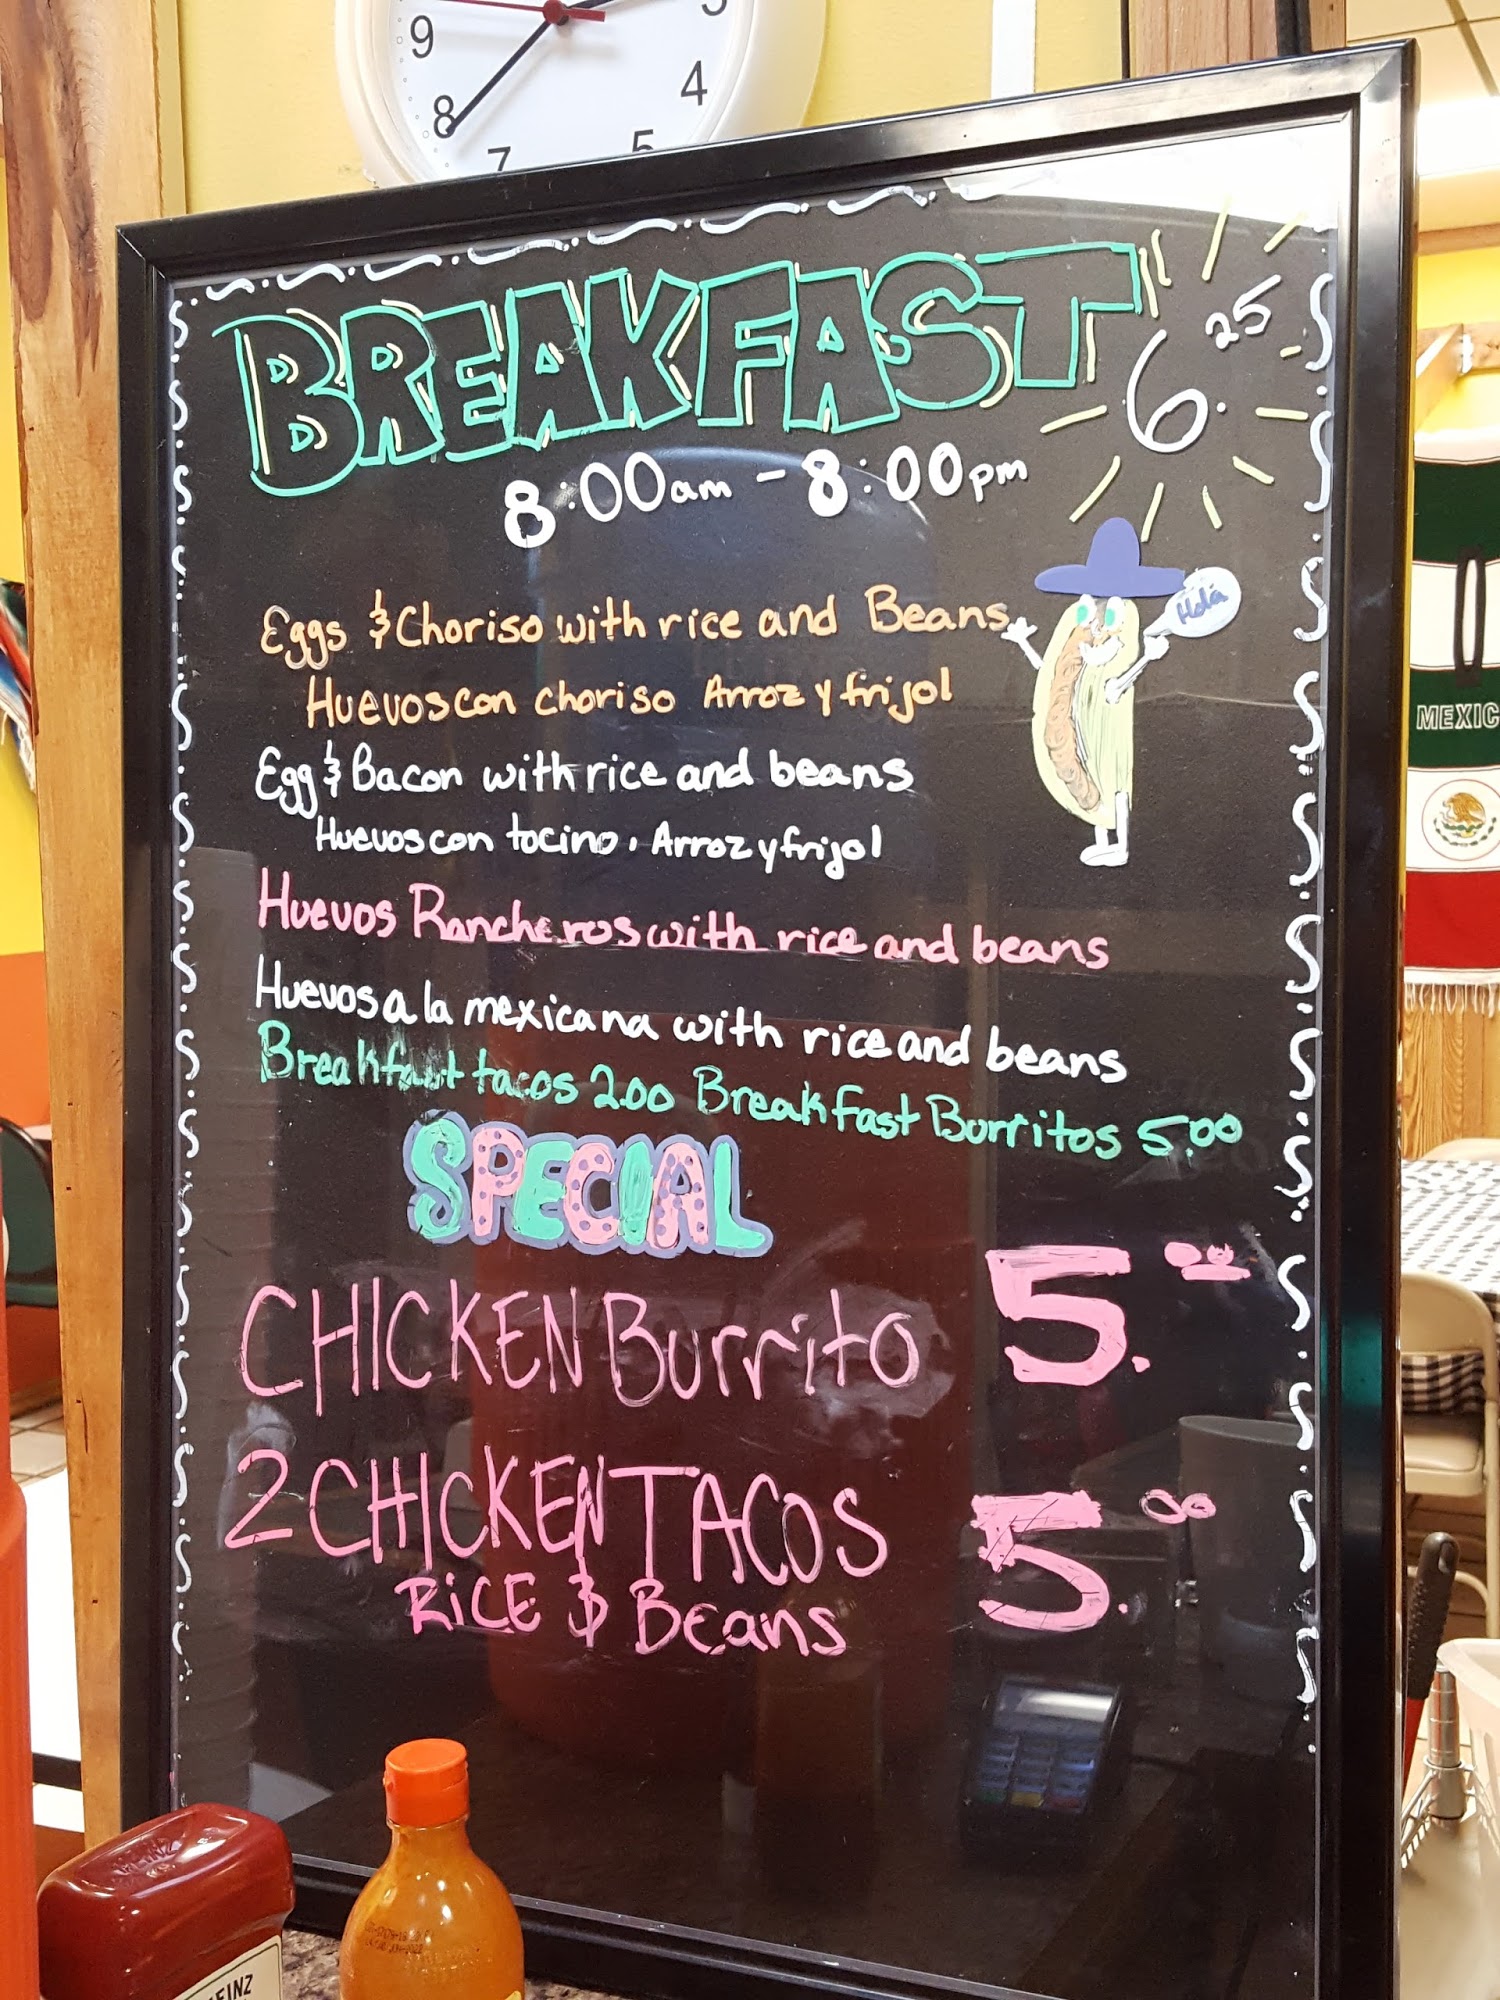 9
3
8
4
7
5
BREAKFAST 6.25
8:00am - 8:00pm
Hola
Eggs & Choriso with rice and Beans
Huevos con choriso Arroz y frijol
Egg & Bacon with rice and beans
Huevos con tocino, Arroz y frijol
Huevos Rancheros with rice and beans
Huevos a la mexicana with rice and beans
Breakfast tacos 2.00 Breakfast Burritos 5.00
SPECIAL
CHICKEN Burrito 5.00
2 CHICKEN TACOS 5.00
RICE & Beans
MEXIC
HEINZ
EINZ